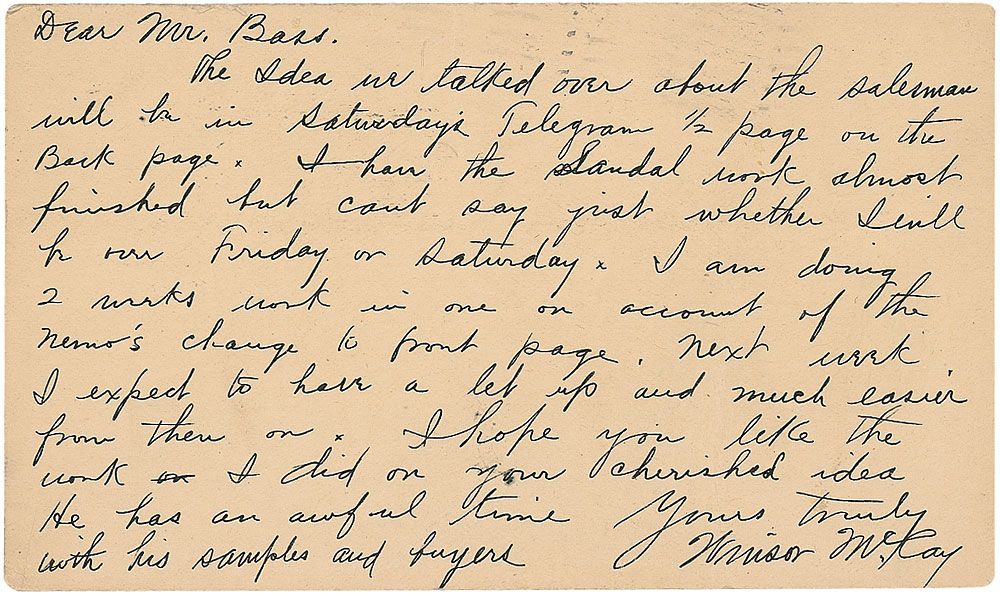 Dear Mr. Bass.
The Idea we talked over about the salesman
will be in Saturday's Telegram 1/2 page on the
Back page. I have the Sandal work almost
finished but cant say just whether I will
be over Friday or Saturday. I am doing
2 weeks work in one on account of the
Nemo's change to front page. Next week
I expect to have a let up and much easier
from then on. I hope you like the
work I did on your cherished idea
He has an awful time Yours truly
with his samples and buyers Winsor McCay